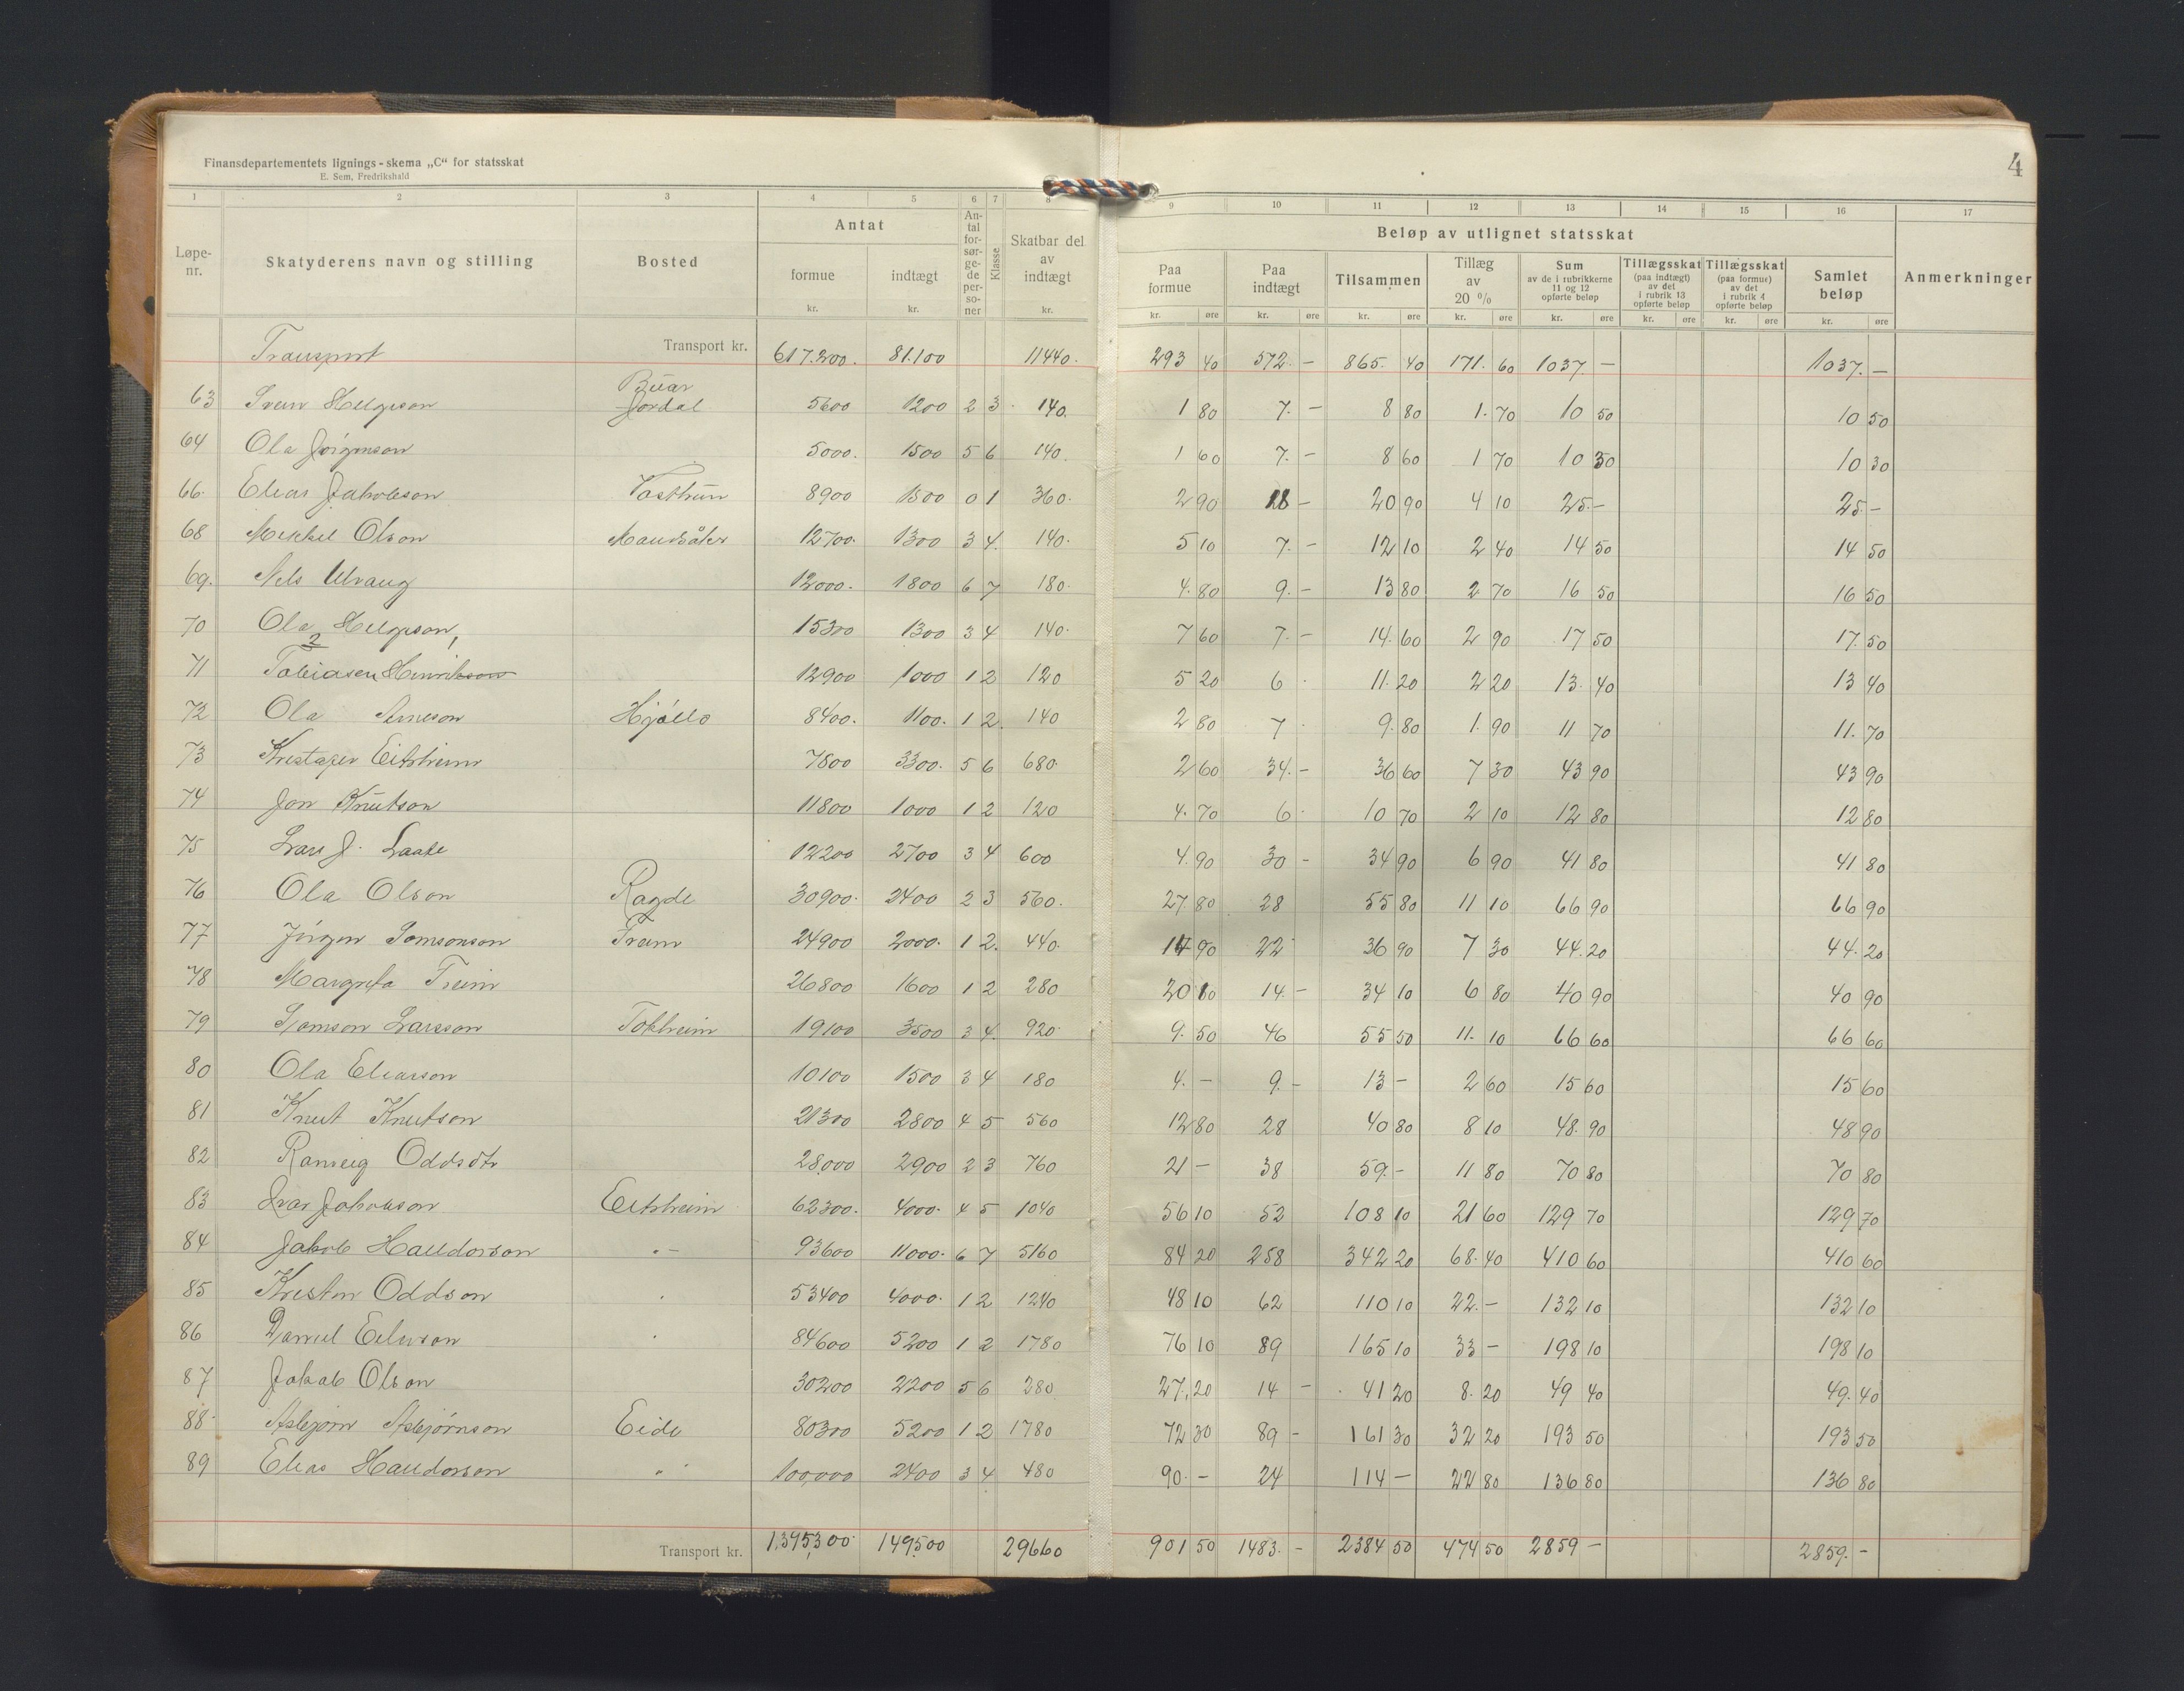 Finansdepartementets lignings-skema „C“ for statsskat
E. Sem, Fredrikshald
4
1 2 3 4 5 6 7 8 9 10 11 12 13 14 15 16 17
Løpe-nr. Skatyderens navn og stilling Bosted Antat formue kr. indtægt kr. Antal forsørgede personer Klasse Skatbar del av indtægt kr. Beløp av utlignet statsskat Paa formue kr. øre Paa indtægt kr. øre Tilsammen kr. øre Tillæg av 20 % kr. øre Sum av de i rubrikkerne 11 og 12 opførte beløp kr. øre Tillægsskat (paa indtægt) av det i rubrik 13 opførte beløp kr. øre Tillægsskat (paa formue) av det i rubrik 4 opførte beløp kr. øre Samlet beløp kr. øre Anmerkninger
Transport Transport kr. 617.200. 81.100 11440. 293 40 572. - 865. 40 171. 60 1037. - 1037. -
Buar
63 Svein Helgeson Jordal 5600 1200 2 3 140. 1 80 7. - 8 80 1. 70 10 50 10 50
64 Ola Jørgenson 5000. 1500 5 6 140. 1 60 7. - 8 60 1 70 10 30 10 30
66. Elias Jakobson Vasthun 8900 1300 0 1 360. 2 90 18 - 20 90 4 10 25. - 25. -
68 Mikkel Olson Mandsåker 12700. 1300 3 4. 140. 5 10 7. - 12 10 2 40 14 50 14 50
69. Nels Ulvang 12000. 1800 6 7 180. 4. 80 9. - 13 80 2 70 16 50 16 50
70 Ola Helgeson 15300 1300 3 4 140. 7 60 7. - 14. 60 2 90 17 50 17. 50
71 Tobiasen Henrikson 12900 1000 1 2 120 5 20 6 11. 20 2 20 13. 40 13 40
72 Ola Arneson Hjøllo 8400. 1100. 1 2. 140 2 80 7 9. 80 1. 90 11 70 11. 70
73 Kristafer Eitrheim 7800 3300. 5 6 680. 2 60 34. - 36 60 7 30 43 90 43 90
74 Jon Knutson 11800 1000 1 2 120 4. 70 6 10 70 2 10 12 80 12 80
75 Lars J. Laate 12200 2700 3 4 600 4. 90 30 - 34 90 6 90 41 80 41 80
76 Ola Olson Ragde 30900. 2400 2 3 560. 27. 80 28 55 80 11 10 66 90 66 90
77 Jørgen Somsonson Freim 24900 2000. 1 2. 440. 14 90 22 36 90 7 30 44. 20 44. 20
78 Margreta Freim 26800 1600 1 2 280 20 10 14. - 34 10 6 80 40 90 40 90
79 Samson Larsson Tokheim 19100 3500 3 4. 920. 9. 50 46 55 50 11. 10 66 60 66 60
80 Ola Eliasson 10100 1500 3 4 180 4. - 9. - 13 - 2 60 15 60 15 60
81 Knut Knutson 21300 2800 4 5 560 12 80 28 40 80 8 10 48. 90 48 90
82 Ranveig Oddsdtr 28000 2900 2 3 760 21 - 38 59. - 11 80 70 80 70 80
83 Ivar Jakobson Eitrheim 62300. 4000. 4 5 1040 56 10 52 108 10 21 60 129 70 129 70
84 Jakob Haldorson " - 93600 11000. 6 7 5160 84 20 258 342 20 68. 40 410 60 410 60
85 Kristen Oddson 53400 4000. 1 2 1240 48 10 62 110 10 22. - 132 10 132 10
86 Daniel Eilivson 84600 5200 1 2 1780 76 10 89 165 10 33 - 198 10 198 10
87 Jakob Olson 30200 2200 5 6 280 27. 20 14 - 41 20 8. 20 49 40 49. 40
88 Asbjørn Asbjørnson Eide 80300 5200 1 2 1780 72 30 89 - 161 30 32 20 193 50 193 50
89 Elias Haldorson " 100,000 2400 3 4 480 90. - 24 114 - 22 80 136 80 136 80
Transport kr. 1,395,300 149500 29660 901 50 1483. - 2384 50 474 50 2859 - 2859. -